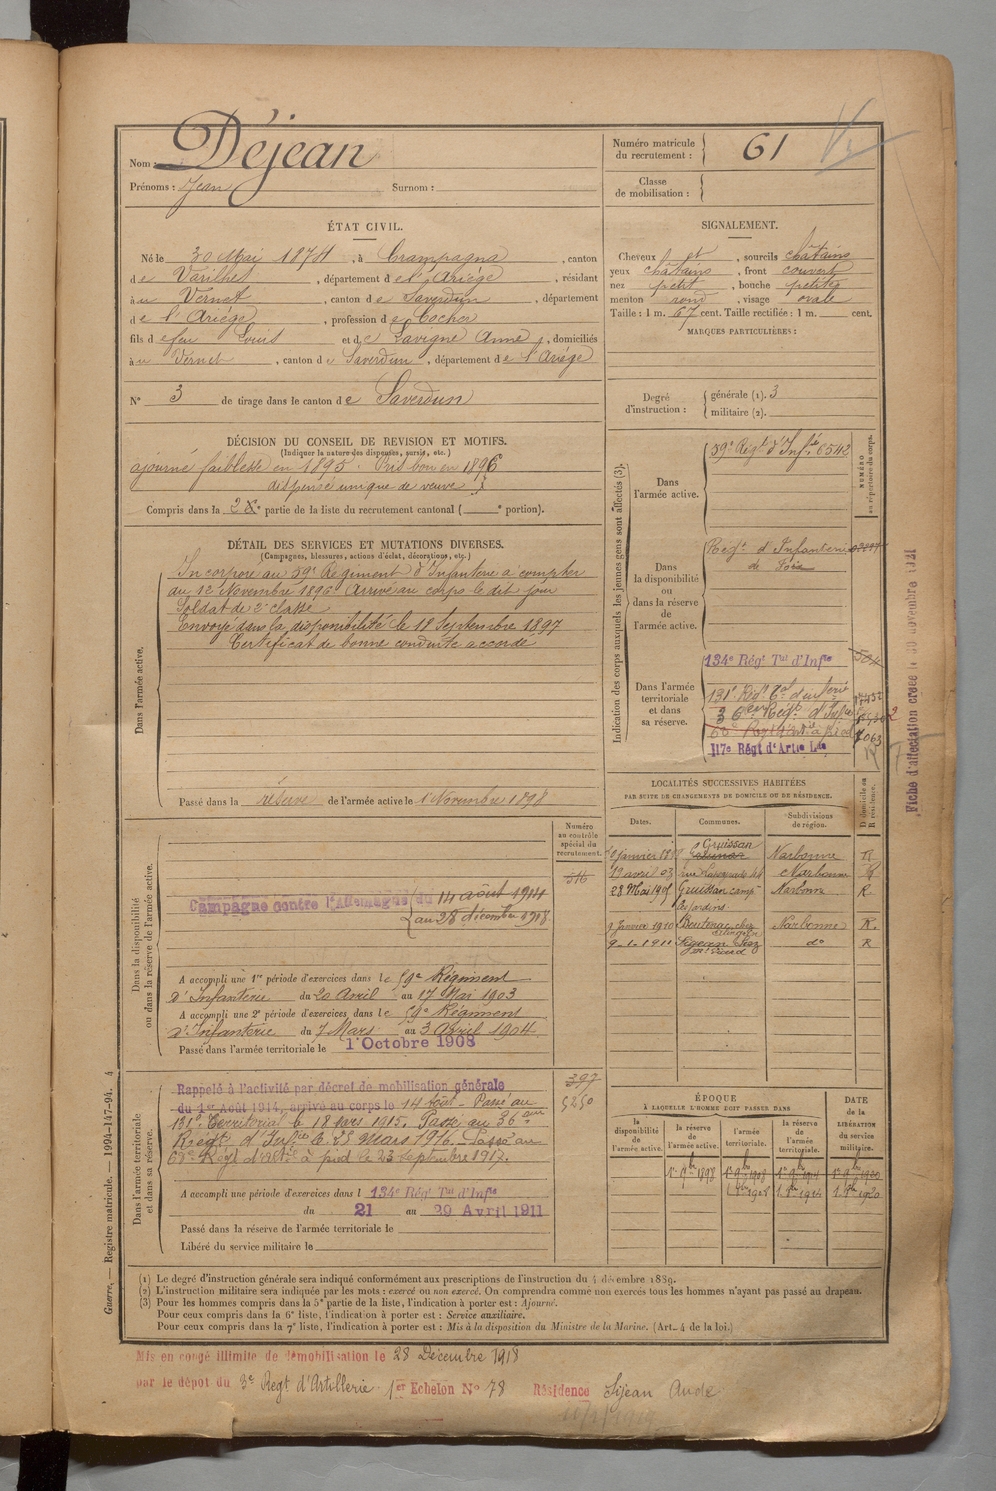 Nom : Déjean
Prénoms : Jean Surnom :
Numéro matricule du recrutement : 61
Classe de mobilisation :
ÉTAT CIVIL.
Né le 30 Mai 1874, à Crampagna, canton
de Varilhes, département de l'Ariège, résidant
au Vernet, canton de Saverdun, département
de l'Ariège, profession de Cocher
fils de feu Louis et de Lavigne Anne, domiciliés
au Vernet, canton de Saverdun, département de l'Ariège
N° 3 de tirage dans le canton de Saverdun
SIGNALEMENT.
Cheveux et, sourcils châtains
yeux châtains, front couvert
nez petit, bouche petite
menton rond, visage ovale
Taille : 1 m. 67 cent. Taille rectifiée : 1 m. cent.
MARQUES PARTICULIÈRES :
Degré d'instruction :
générale (1). 3
militaire (2).
DÉCISION DU CONSEIL DE REVISION ET MOTIFS.
(Indiquer la nature des dispenses, sursis, etc.)
ajourné faiblesse en 1895. Pris bon en 1896
dispensé unique de veuve
Compris dans la 2e partie de la liste du recrutement cantonal ( e portion).
DÉTAIL DES SERVICES ET MUTATIONS DIVERSES.
(Campagnes, blessures, actions d'éclat, décorations, etc.)
Dans l'armée active.
Incorporé au 59e Régiment d'Infanterie à compter
du 1er Novembre 1896 Arrivé au corps le dit jour
Soldat de 2e classe
Envoyé dans la disponibilité le 18 Septembre 1897
Certificat de bonne conduite accordé
Passé dans la réserve de l'armée active le 1 Novembre 1898
Indication des corps auxquels les jeunes gens sont affectés (3).
NUMÉRO au répertoire du corps.
Dans l'armée active.
59e Régt d'Infie 6542
Dans la disponibilité ou dans la réserve de l'armée active.
Régt d'Infanterie
de Foix
Dans l'armée territoriale et dans sa réserve.
134e Régt Tal d'Infie 504
131e Régt Tal d'Infanterie
36e Régt d'Infie
117e Régt d'Artie Lde
Fiche d'affectation créée le 30 novembre 1921
Dans la disponibilité ou dans la réserve de l'armée active.
Numéro au contrôle spécial du recrutement.
516
Campagne contre l'Allemagne du 14 août 1914
au 28 décembre 1918
A accompli une 1re période d'exercices dans le 59e Régiment
d'Infanterie du 20 Avril au 17 Mai 1903
A accompli une 2e période d'exercices dans le 59e Régiment
d'Infanterie du 7 Mars au 3 Avril 1904
Passé dans l'armée territoriale le 1 Octobre 1908
LOCALITÉS SUCCESSIVES HABITÉES
PAR SUITE DE CHANGEMENTS DE DOMICILE OU DE RÉSIDENCE.
Dates. Communes. Subdivisions de région. D domicile ou R résidence.
Gruissan Narbonne R
19 avril 03 Narbonne R
28 Mai 1905 Gruissan camp Narbonne R
les jardins
9 Janvier 1910 Narbonne R.
9-1-1911 Sigean do R
Dans l'armée territoriale et dans sa réserve.
397
5250
Rappelé à l'activité par décret de mobilisation générale
du 1er Août 1914, arrivé au corps le 14 Août - Passé au
131e Territorial le 18 Mars 1915. Passé au 36ème
Régt d'Infie C. 23 Mars 1916. Passé au
68e Régt d'artie à pied le 23 Septembre 1917.
A accompli une période d'exercices dans l 134e Régt Tal d'Infie
du 21 au 29 Avril 1911
Passé dans la réserve de l'armée territoriale le
Libéré du service militaire le
ÉPOQUE
À LAQUELLE L'HOMME DOIT PASSER DANS
la disponibilité de l'armée active. la réserve de l'armée active. l'armée territoriale. la réserve de l'armée territoriale. DATE de la LIBÉRATION du service militaire.
1er 9bre 1898 1er 9bre 1908 1er 9bre 1914 1er 9bre 1920
Guerre. — Registre matricule. — 1994-147-94. 4
(1) Le degré d'instruction générale sera indiqué conformément aux prescriptions de l'instruction du 4 décembre 1889.
(2) L'instruction militaire sera indiquée par les mots : exercé ou non exercé. On comprendra comme non exercés tous les hommes n'ayant pas passé au drapeau.
(3) Pour les hommes compris dans la 5e partie de la liste, l'indication à porter est : Ajourné.
Pour ceux compris dans la 6e liste, l'indication à porter est : Service auxiliaire.
Pour ceux compris dans la 7e liste, l'indication à porter est : Mis à la disposition du Ministre de la Marine. (Art. 4 de la loi.)
Mis en congé illimité de démobilisation le 28 Décembre 1918
par le dépôt du 3e Régt d'Artillerie. 1er Echelon No 78 Résidence Sijean Aude